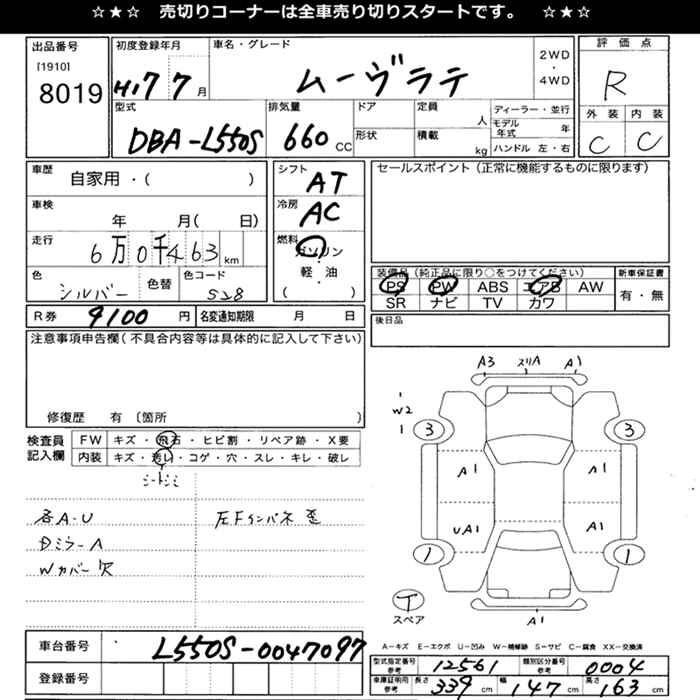 ☆★☆ 売切りコーナーは全車売り切りスタートです。 ☆★☆
出品番号 初度登録年月 車名・グレード 評価点
[1910] 8019
H17 7月 ムーヴラテ 2WD・4WD R
型式 排気量 ドア 定員 人 ディーラー・並行 外装 内装
DBA-L550S 660CC 形状 積載 kg モデル年式 年 C C
ハンドル 左・右
車歴 自家用・( )
シフト AT
セールスポイント(正常に機能するものに限ります)
車検 年 月( 日)
冷房 AC
走行 6万0千463km
燃料 ガソリン・軽油 ( )
色 シルバー 色替 色コード S28
装備品(純正品に限り○をつけてください) 新車保証書
PS PW ABS エアB AW 有・無
SR ナビ TV カワ
R券 9100円 名変通知期限 月 日
後日品
注意事項申告欄(不具合内容等は具体的に記入して下さい)
修復歴 有 〔箇所 )
検査員記入欄 FW キズ・飛石・ヒビ割・リペア跡・X要
内装 キズ・汚レ・コゲ・穴・スレ・キレ・破レ
シートシミ
各A-U 左Fインパネ歪
Dミラ-A
Wカバー欠
A3 スリA A1
W2
3 3
A1 A1
UA1 A1
1 1
T
スペア A1
A-キズ E-エクボ U-凹み W-補修跡 S-サビ C-腐食 XX-交換済
車台番号 L550S-0047097
登録番号
型式指定番号 参考 12561 類別区分番号 参考 0004
車庫証明用 参考 長さ 339cm 幅 147cm 高さ 163cm